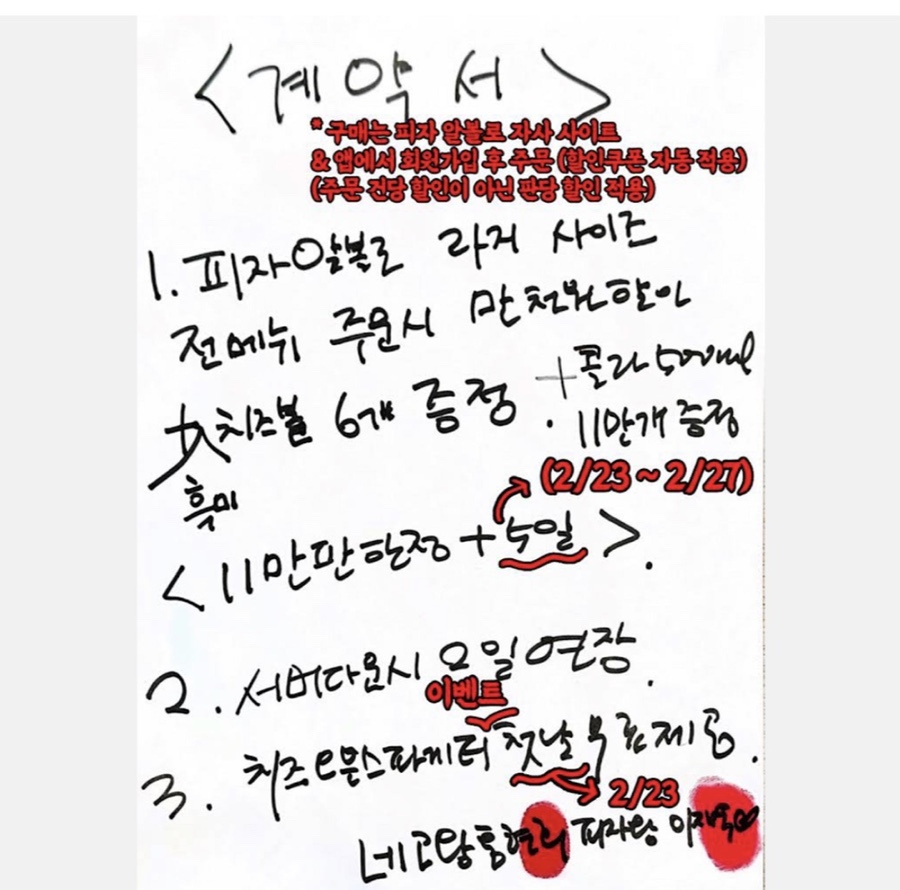 <계약서>
* 구매는 피자 알볼로 자사 사이트
& 앱에서 회원가입 후 주문 (할인쿠폰 자동 적용)
(주문 건당 할인이 아닌 판당 할인 적용)
1. 피자알볼로 라지 사이즈
전메뉴 주문시 만천원할인
+ 콜라 500ml
치즈볼 6개 증정 . 11만개 증정
흑미
(2/23 ~ 2/27)
<11만판한정 + 5일>.
2. 서버다운시 요일연장.
이벤트
3. 치즈오븐스파게티 첫날 무료제공.
2/23
네고왕 홍현희 피자왕 이재욱